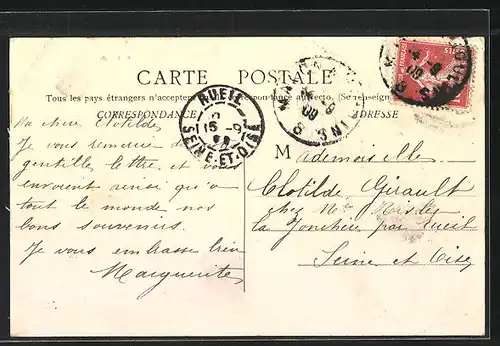 CARTE POSTALE
Tous les pays étrangers n'acceptent correspondance au recto. (Se renseigner
CORRESPONDANCE
ADRESSE
RUEIL
15 -9
09
SEINE-ET-OISE
Ma chère Clotilde,
Je vous remercie de
gentille lettre et vous
envoient ainsi qu'a
tout le monde nos
bons souvenirs.
Je vous embrasse bien
Marguerite
Mademoiselle
Clotilde Girault
chez Me
la Jonchère par Rueil
Seine et Oise